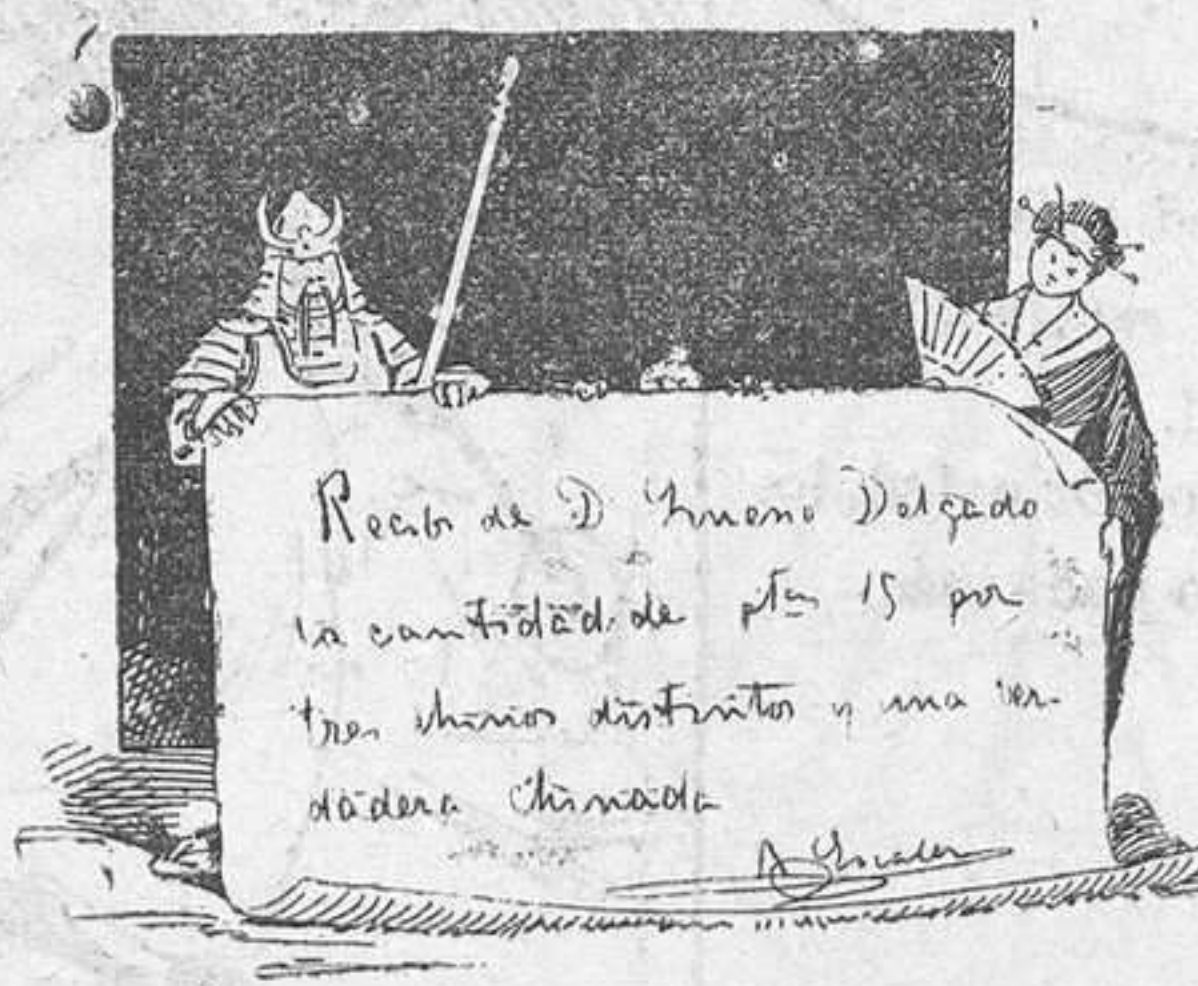 Recibí de D Sinesio Delgado
la cantidad de ptas 15 por
tres chinos distintos y una ver-
dadera chinada